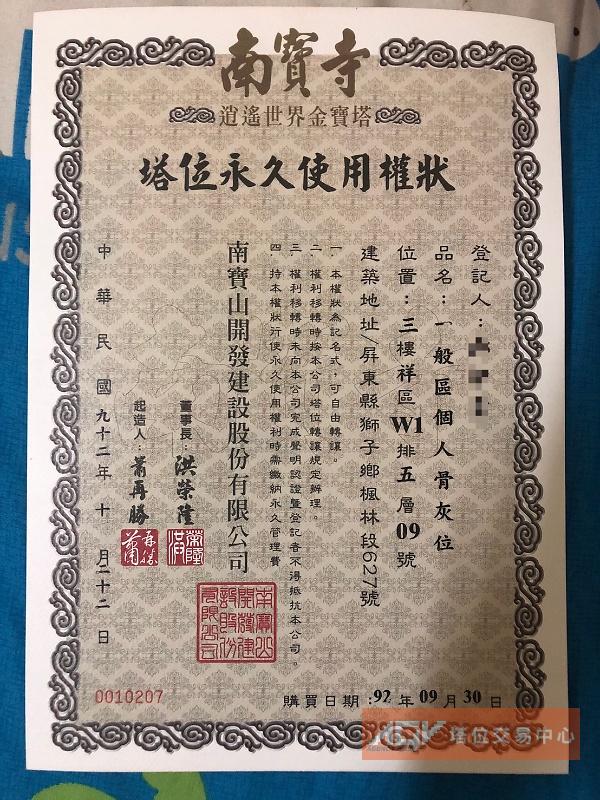 南寶寺
逍遙世界金寶塔
塔位永久使用權狀
登記人：
品名：一般區個人骨灰位
位置：三樓祥區W1排五層09號
建築地址/屏東縣獅子鄉楓林段627號
一、本權狀為記名式，可自由轉讓。
二、權利移轉時按本公司塔位轉讓規定辦理。
三、權利移轉時未向本公司完成聲明認證暨登記者不得抵抗本公司。
四、持本權狀行使永久使用權利時需繳納永久管理費
南寶山開發建設股份有限公司
董事長：洪榮隆
起造人：蕭再勝
中華民國九十二年十月二十二日
0010207
購買日期：92年09月30日
塔位交易中心